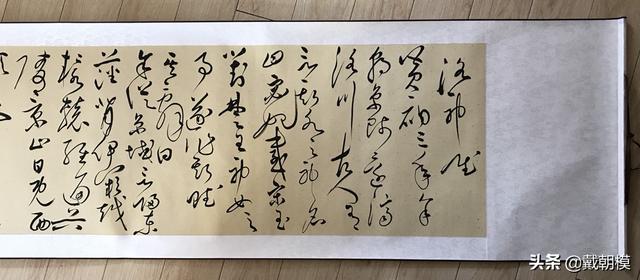 洛神賦
黃初三年余
朝京師還濟
洛川古人有
言斯水之神名
曰宓妃感宋玉
對楚王神女之
事遂作斯賦
其辭曰
余從京域言歸東
藩背伊闕越
轘轅經通谷
陵景山日既西
头条 @戴朝模